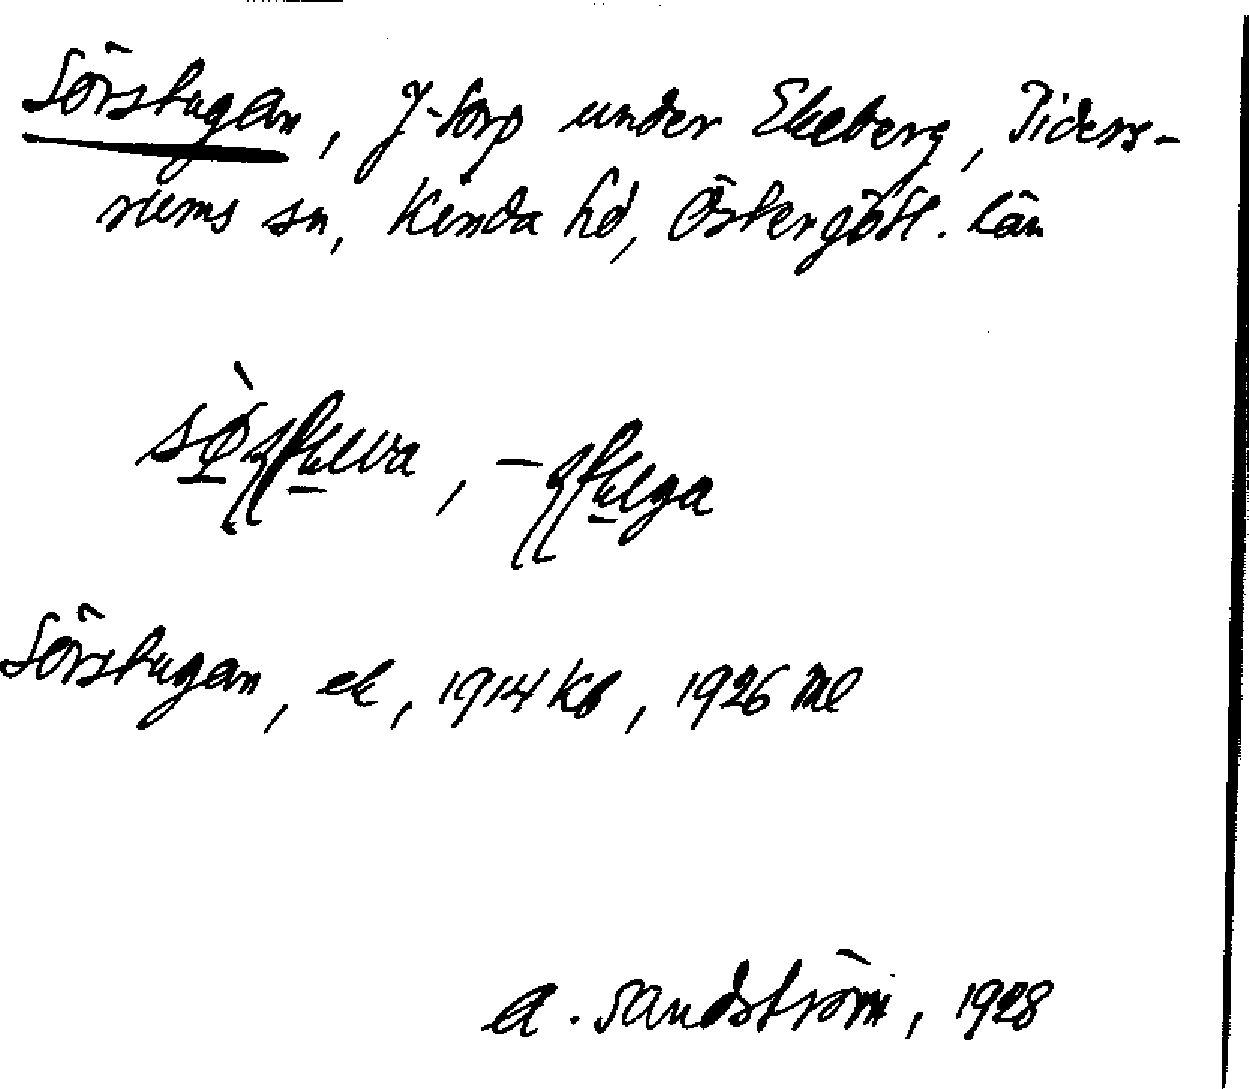 Sörstugan, J-torp under Ekeberg, Tiders-
rums sn, Kinda hd, Östergötl. län
Sörstugan, ek, 1914 Kb, 1926 Ml
A. Sandström, 1928